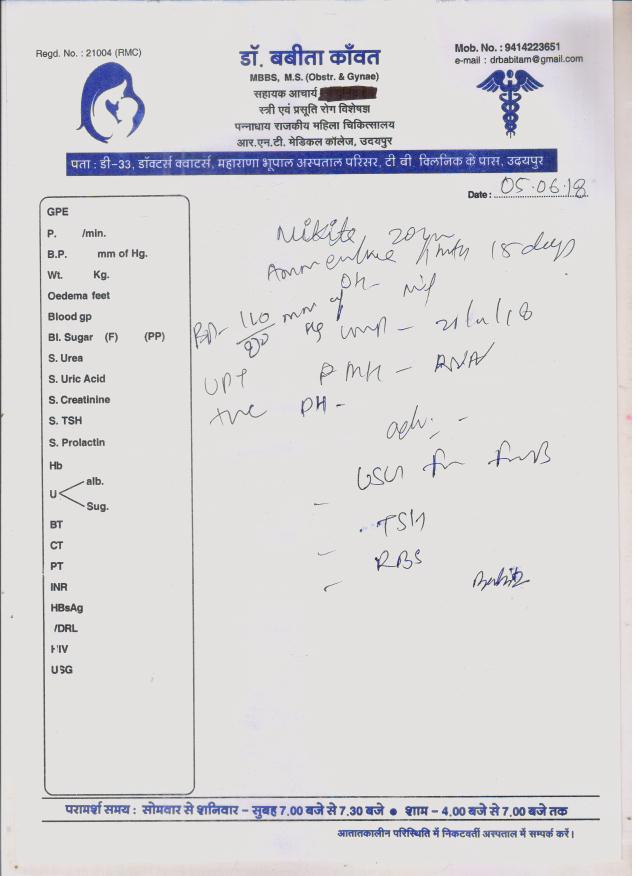 Regd. No. : 21004 (RMC)
डॉ. बबीता काँवत
MBBS, M.S. (Obstr. & Gynae)
सहायक आचार्य
स्त्री एवं प्रसूति रोग विशेषज्ञ
पन्नाधाय राजकीय महिला चिकित्सालय
आर.एन.टी. मेडिकल कॉलेज, उदयपुर
Mob. No. : 9414223651
e-mail : drbabitam@gmail.com
पता : डी-33, डॉक्टर्स क्वाटर्स, महाराणा भूपाल अस्पताल परिसर, टी वी. क्लिनिक के पास, उदयपुर
Date : 05.06.18
GPE
P. /min.
B.P. mm of Hg.
Wt. Kg.
Oedema feet
Blood gp
Bl. Sugar (F) (PP)
S. Urea
S. Uric Acid
S. Creatinine
S. TSH
S. Prolactin
Hb
U alb.
Sug.
BT
CT
PT
INR
HBsAg
/DRL
HIV
USG
Nikita, 20
18 days
OH-
BP- 110 mm of Hg
UPT
PMH -
PH -
adv: -
USG for
- TSH
- RBS
परामर्श समय : सोमवार से शनिवार - सुबह 7.00 बजे से 7.30 बजे ● शाम - 4.00 बजे से 7.00 बजे तक
आतातकालीन परिस्थिति में निकटवर्ती अस्पताल में सम्पर्क करें।